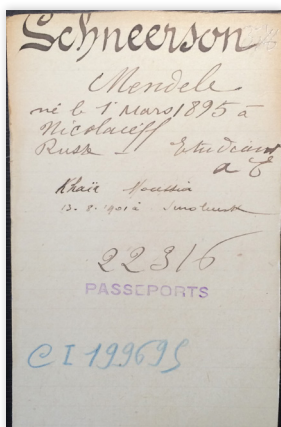 Schneerson
Mendele
né le 1 Mars 1895 à
Nicolaieff
Rusk - Etudiant
a E
Khaïe Moussia
13. 8. 1901 à Smolensk
22316
PASSEPORTS
C I 199695